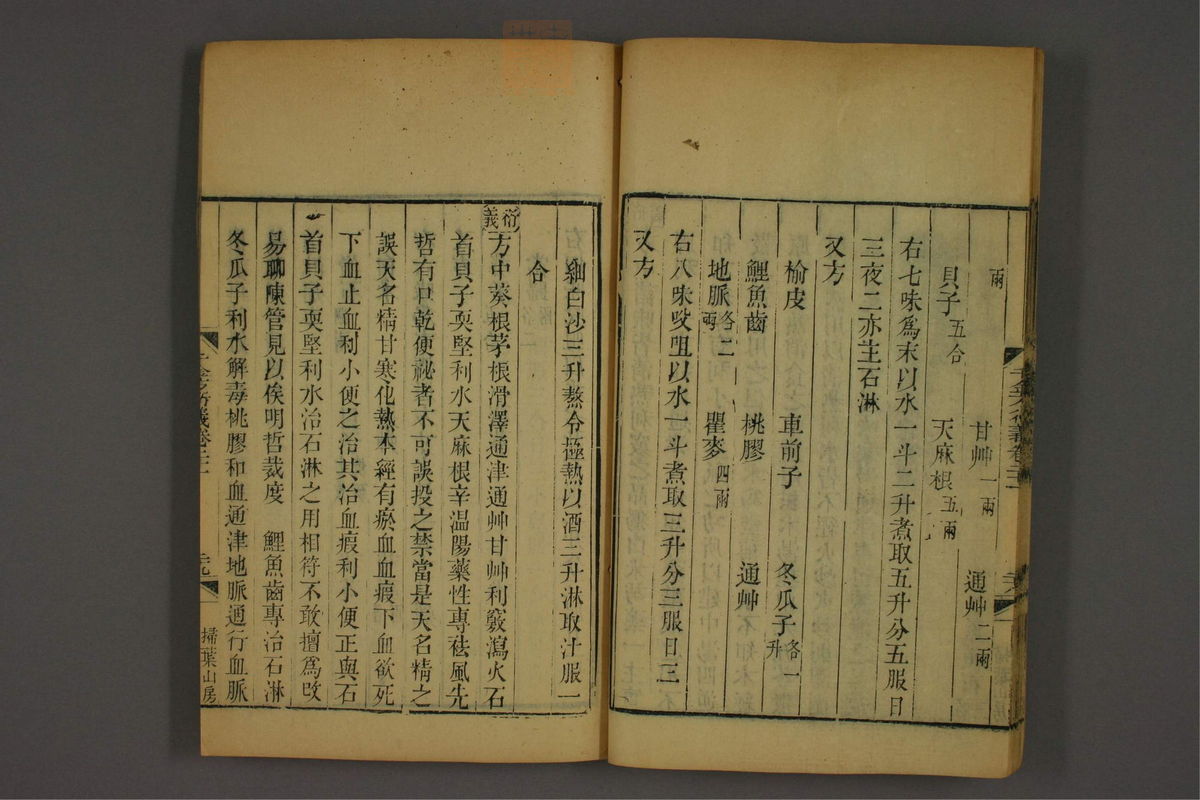 兩
甘艸一兩　通艸二兩
貝子五合　天麻根五兩
右七味爲末以水一斗二升煮取五升分五服日
三夜二亦主石淋
又方
榆皮　車前子　冬瓜子各一升
鯉魚齒　桃膠　通艸
地脈各二兩　瞿麥四兩
右八味㕮咀以水一斗煮取三升分三服日三
又方
細白沙三升熬令極熱以酒三升淋取汁服一
合
衍義方中葵根茅根滑澤通津通艸甘艸利竅瀉火石
首貝子耎堅利水天麻根辛温陽藥性專祛風先
哲有口乾便祕者不可誤投之禁當是天名精之
誤天名精甘寒化熱本經有瘀血血瘕下血欲死
下血止血利小便之治其治血瘕利小便正與石
首貝子耎堅利水治石淋之用相符不敢擅爲改
易聊陳管見以俟明哲裁度　鯉魚齒專治石淋
冬瓜子利水解毒桃膠和血通津地脈通行血脈
掃葉山房